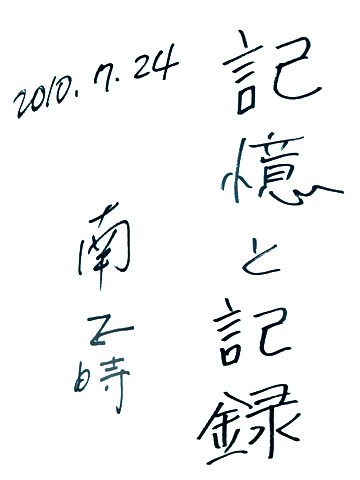 記憶と記録
2010.7.24
南乙時